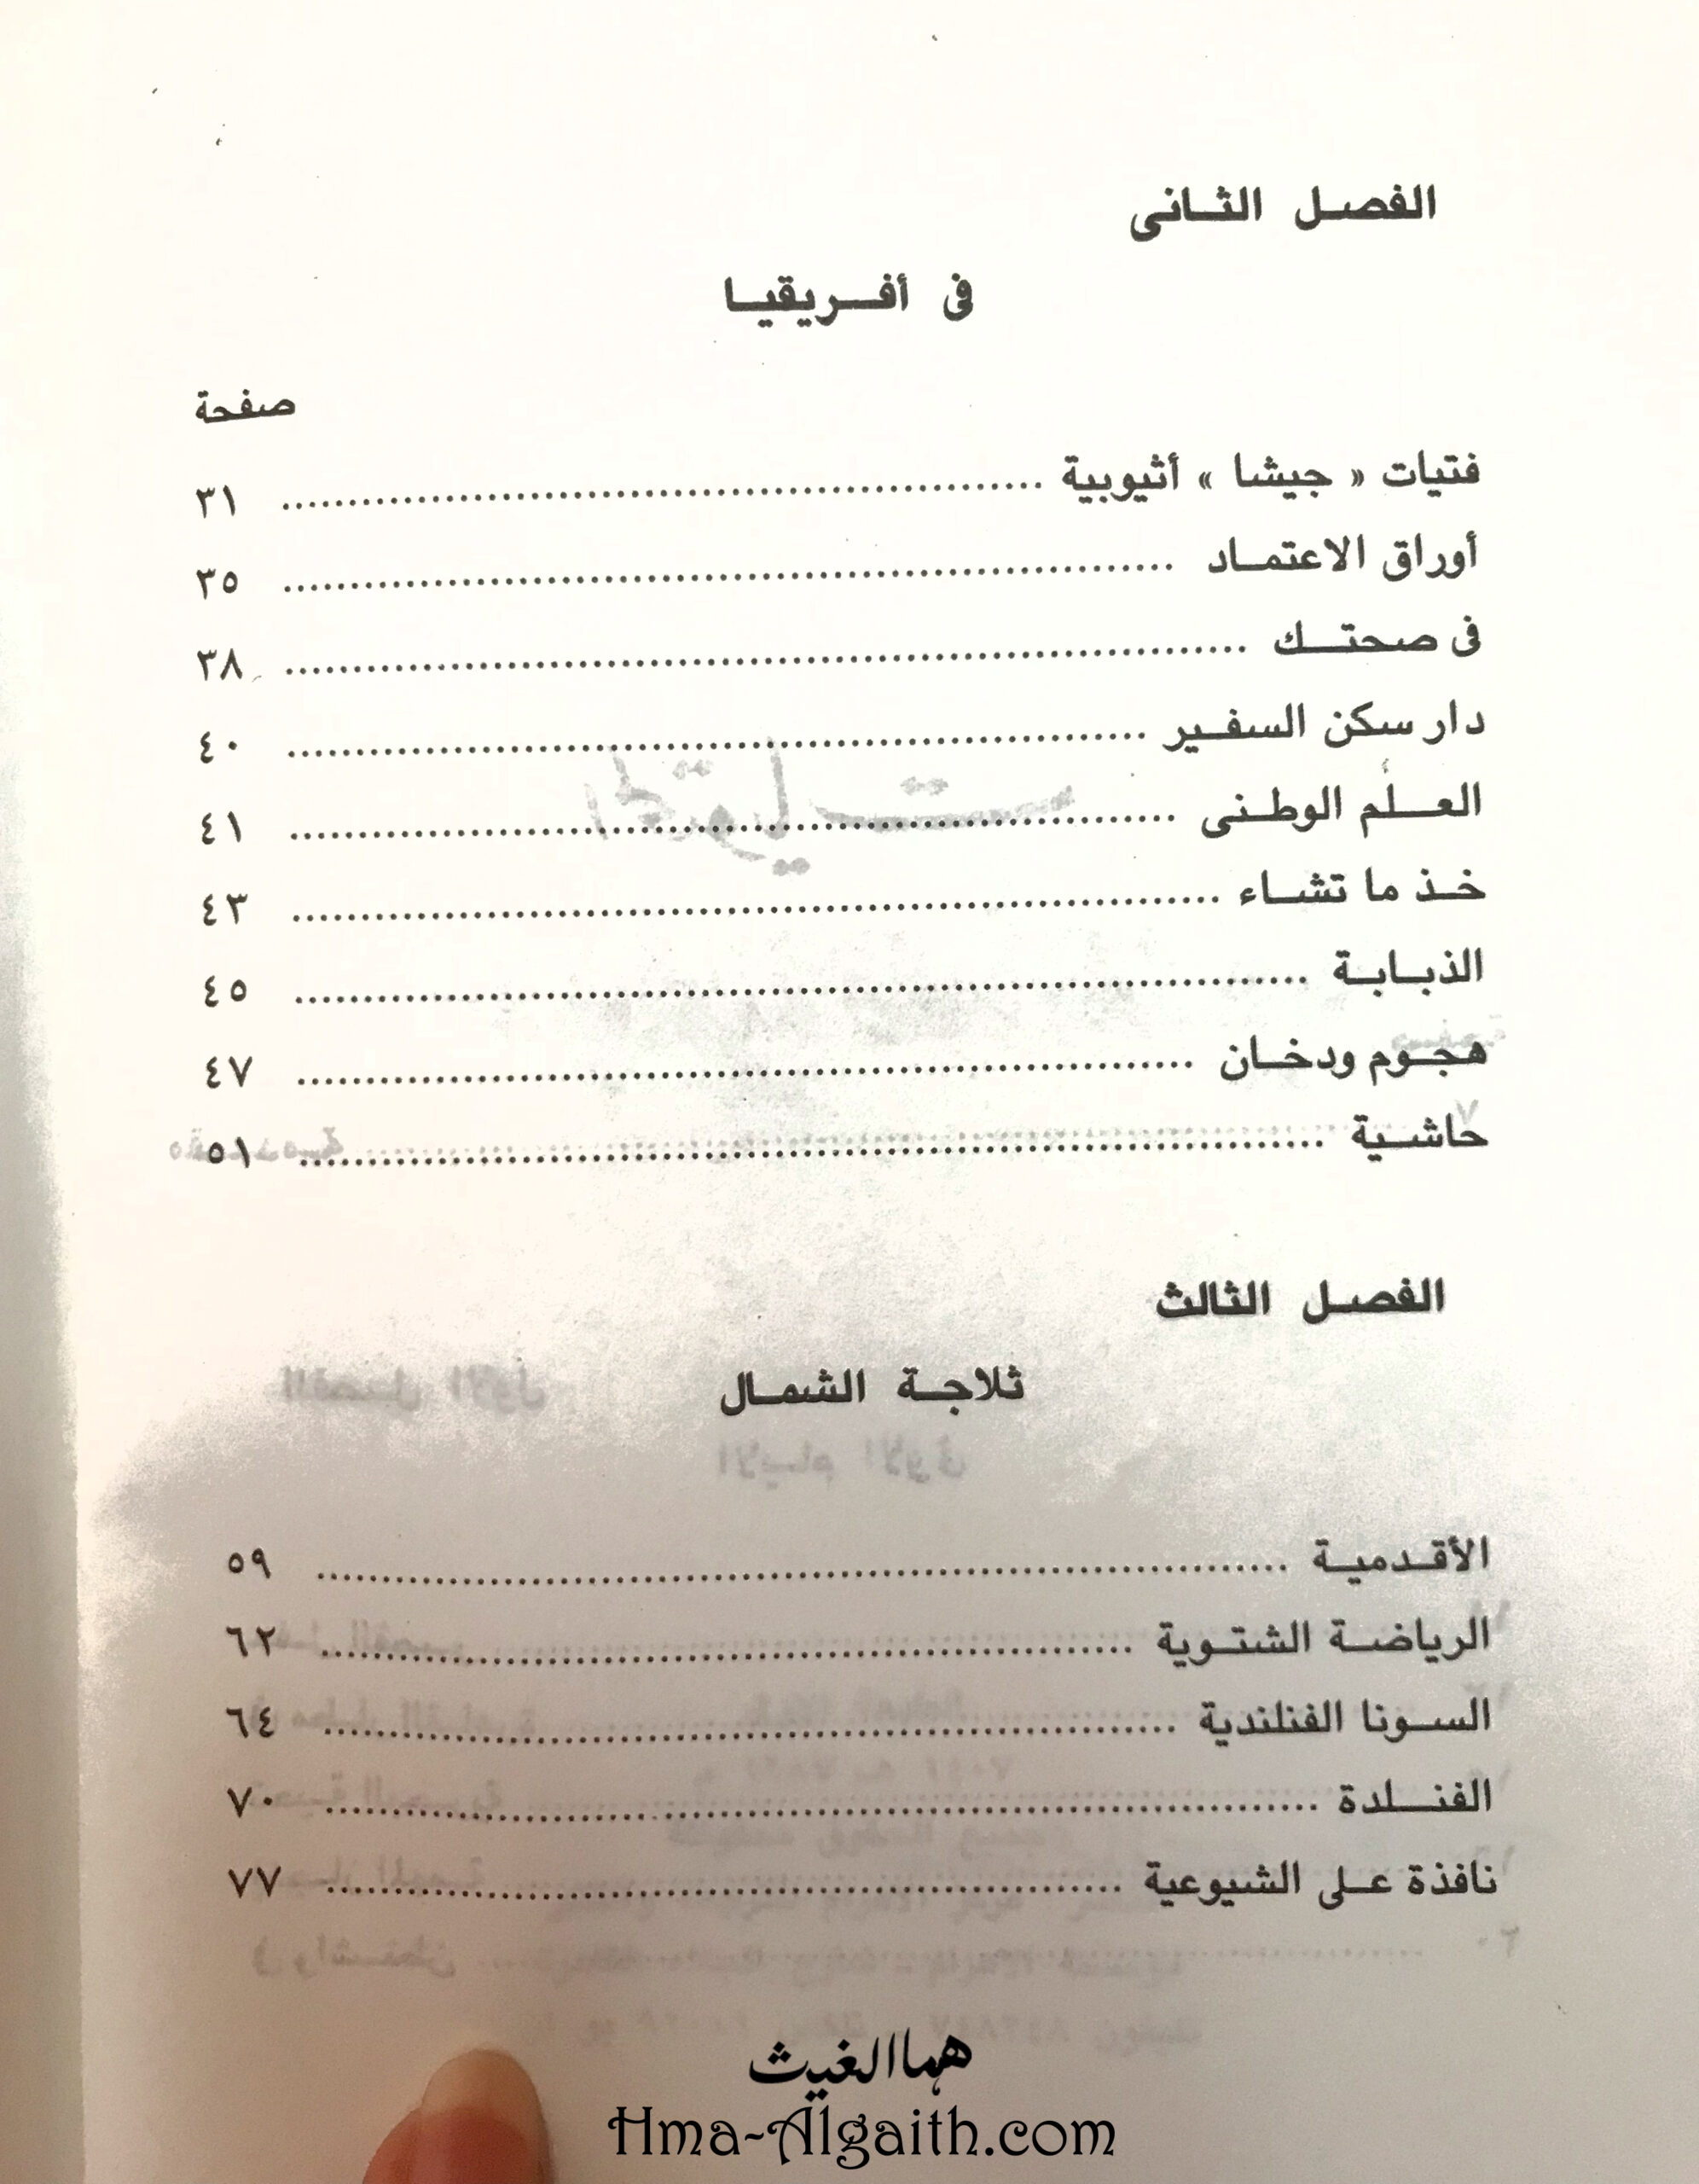 الفصل الثانى
فى أفريقيا
صفحة
فتيات « جيشا » أثيوبية ........................................ ٣١
أوراق الاعتماد ........................................ ٣٥
فى صحتك ........................................ ٣٨
دار سكن السفير ........................................ ٤٠
العلُم الوطنى ........................................ ٤١
خذ ما تشاء ........................................ ٤٣
الذبابة ........................................ ٤٥
هجوم ودخان ........................................ ٤٧
حاشية ........................................ ٥١
الفصل الثالث
ثلاجة الشمال
الأقدمية ........................................ ٥٩
الرياضة الشتوية ........................................ ٦٢
السونا الفنلندية ........................................ ٦٤
الفنلدة ........................................ ٧٠
نافذة على الشيوعية ........................................ ٧٧
هما الغيث
Hma-Algaith.com